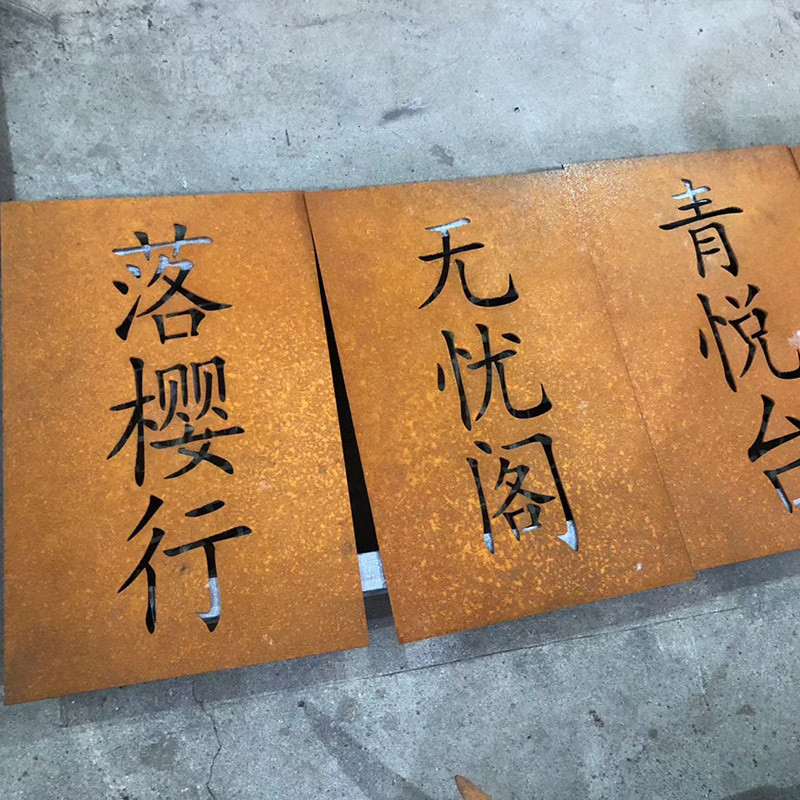 落樱行
无忧阁
青悦台